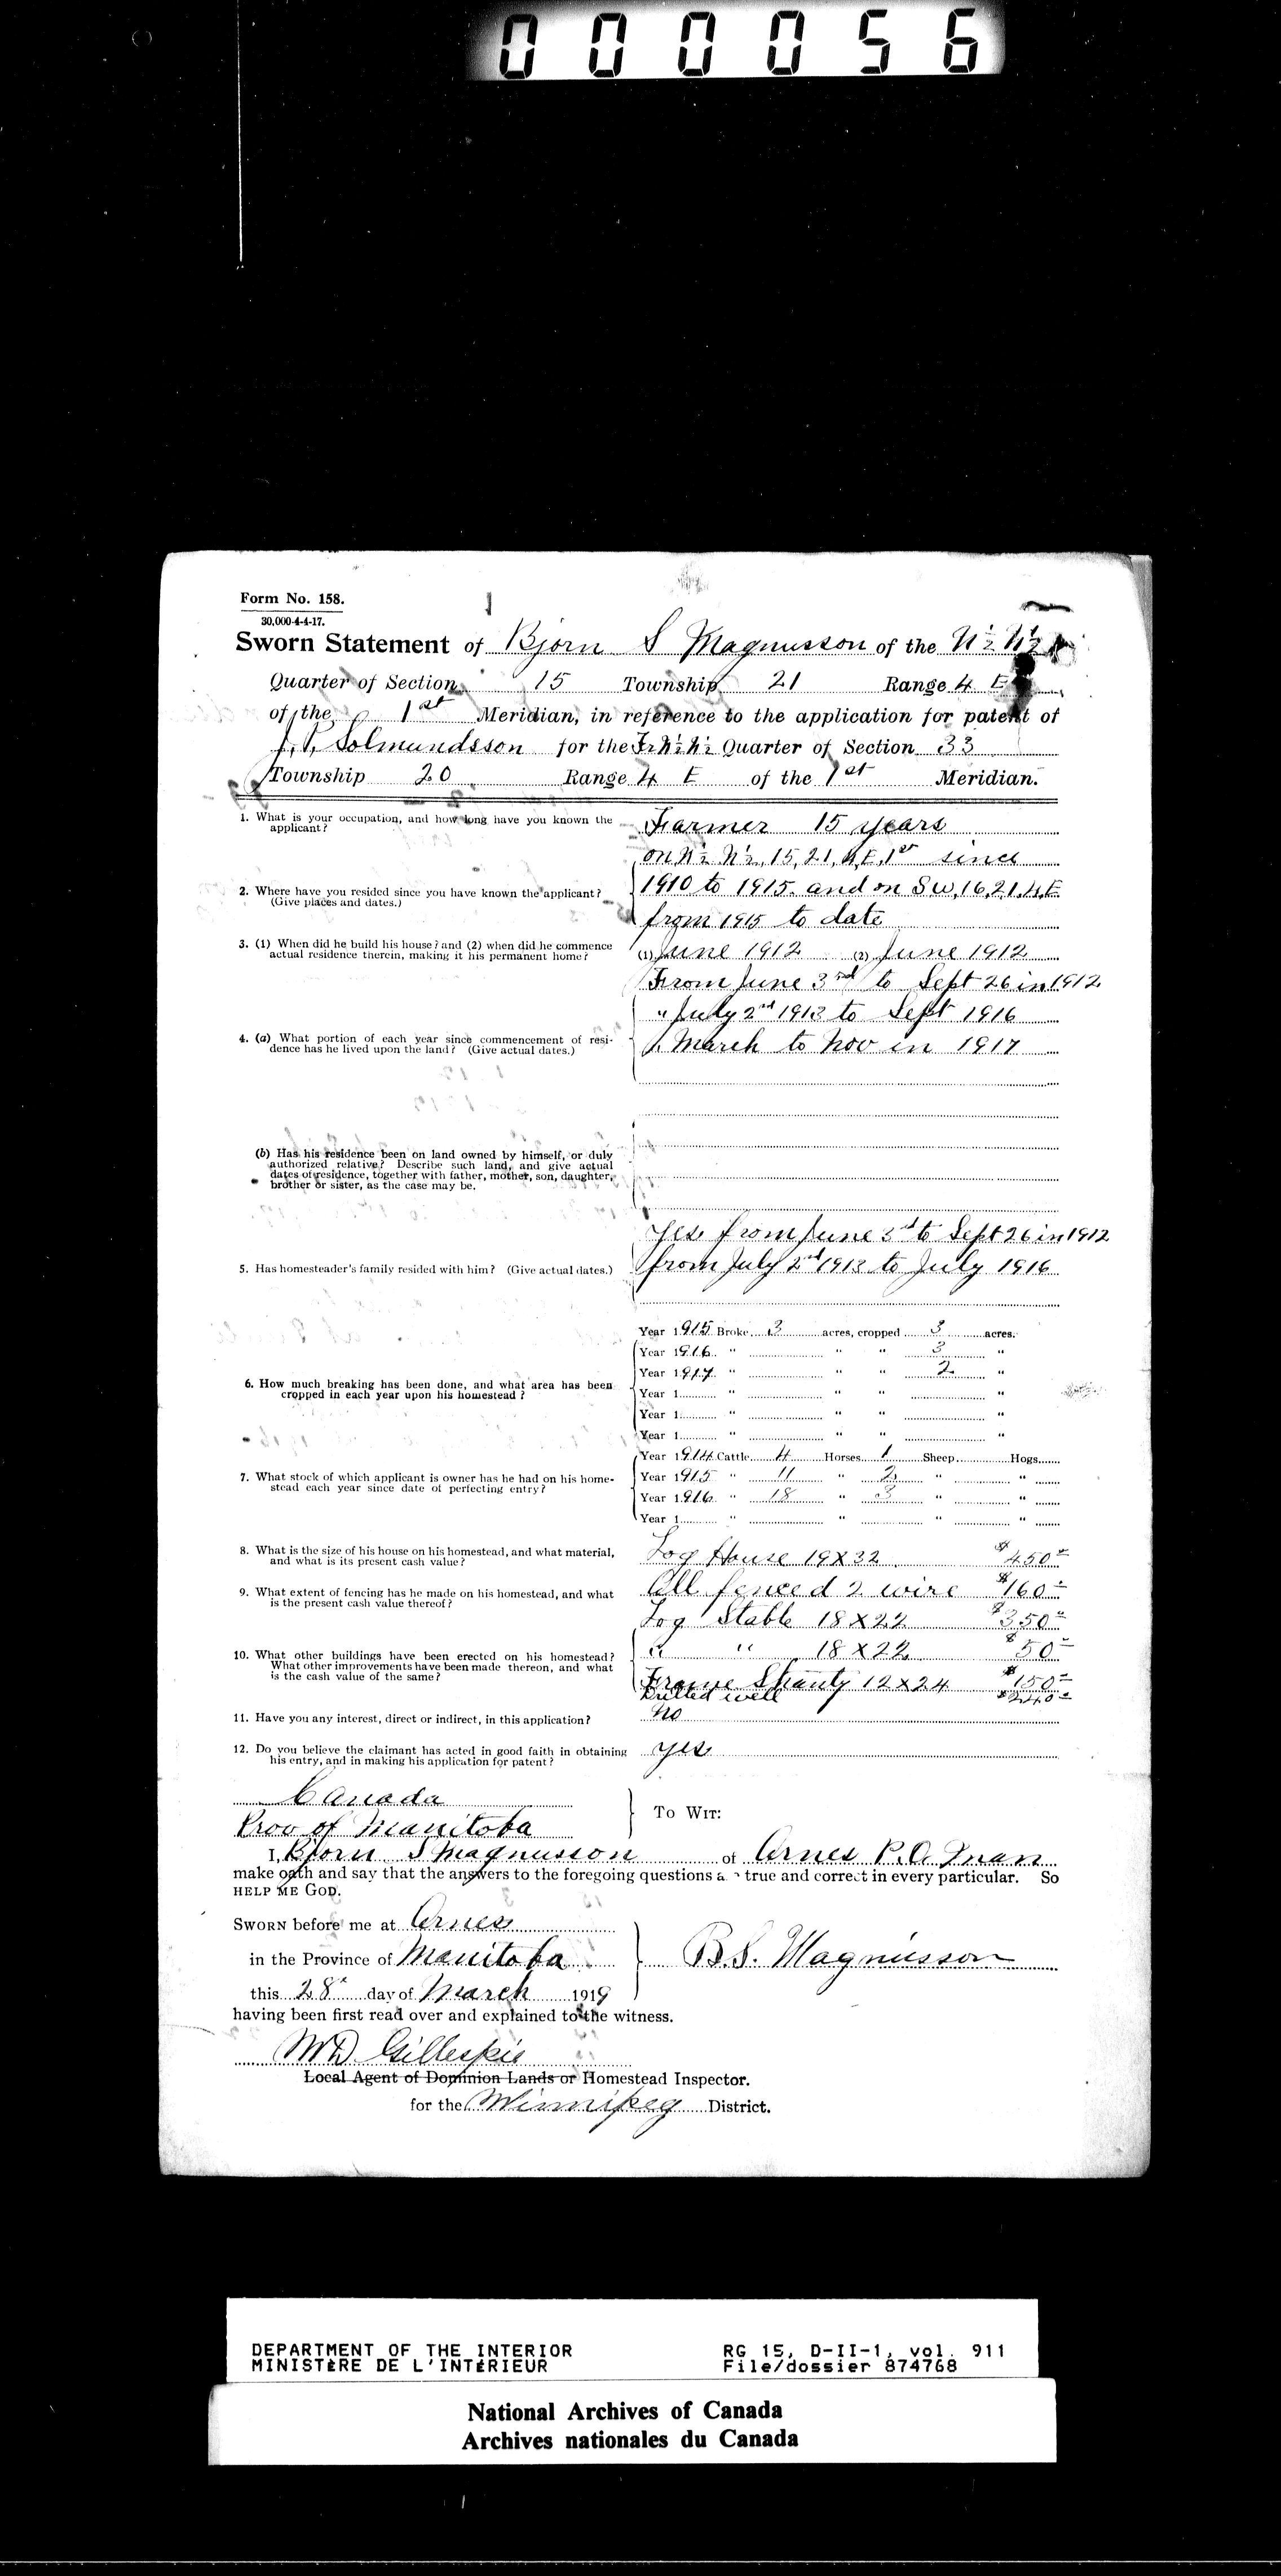 000056
Form No. 158.
30,000-4-4-17.
Sworn Statement of Bjorn S Magnusson of the N½ N½
Quarter of Section 15 Township 21 Range 4 E
of the 1st Meridian, in reference to the application for patent of
J. P. Solmundsson for the Fr N½ N½ Quarter of Section 33
Township 20 Range 4 E of the 1st Meridian.
1. What is your occupation, and how long have you known the applicant?
Farmer 15 years
2. Where have you resided since you have known the applicant?
(Give places and dates.)
on N½ N½, 15, 21, 4, E, 1st since
1910 to 1915. and on SW, 16, 21, 4, E
from 1915 to date
3. (1) When did he build his house? and (2) when did he commence
actual residence therein, making it his permanent home?
(1) June 1912 (2) June 1912
4. (a) What portion of each year since commencement of resi-
dence has he lived upon the land? (Give actual dates.)
From June 3rd to Sept 26 in 1912
" July 2nd 1913 to Sept 1916
" March to Nov in 1917
(b) Has his residence been on land owned by himself, or duly
authorized relative? Describe such land, and give actual
dates of residence, together with father, mother, son, daughter,
brother or sister, as the case may be.
5. Has homesteader's family resided with him? (Give actual dates.)
Yes from June 3rd to Sept 26 in 1912
from July 2nd 1913 to July 1916
6. How much breaking has been done, and what area has been
cropped in each year upon his homestead?
Year 1915 Broke 3 acres, cropped 3 acres.
Year 1916 " " " 3 "
Year 1917 " " " 2 "
Year 1 " " " "
Year 1 " " " "
Year 1 " " " "
7. What stock of which applicant is owner has he had on his home-
stead each year since date of perfecting entry?
Year 1914 Cattle 4 Horses 1 Sheep Hogs
Year 1915 " 11 " 2 " "
Year 1916 " 18 " 3 " "
Year 1 " " " "
8. What is the size of his house on his homestead, and what material,
and what is its present cash value?
Log House 19X32 $450=
9. What extent of fencing has he made on his homestead, and what
is the present cash value thereof?
All fenced 2 wire $160=
10. What other buildings have been erected on his homestead?
What other improvements have been made thereon, and what
is the cash value of the same?
Log Stable 18X22 $350=
" " 18X22 $50=
Frame Shanty 12X24 $150=
Drilled well $240=
11. Have you any interest, direct or indirect, in this application?
No
12. Do you believe the claimant has acted in good faith in obtaining
his entry, and in making his application for patent?
yes
Canada
Prov of Manitoba
To Wit:
I, Bjorn S Magnusson of Arnes P.O. Man
make oath and say that the answers to the foregoing questions a e true and correct in every particular. So
HELP ME GOD.
SWORN before me at Arnes
in the Province of Manitoba
this 28th day of March 1919
B.S. Magnusson
having been first read over and explained to the witness.
MD Gillespie
Local Agent of Dominion Lands or Homestead Inspector.
for the Winnipeg District.
DEPARTMENT OF THE INTERIOR
MINISTÈRE DE L'INTÉRIEUR
RG 15, D-II-1, vol. 911
File/dossier 874768
National Archives of Canada
Archives nationales du Canada